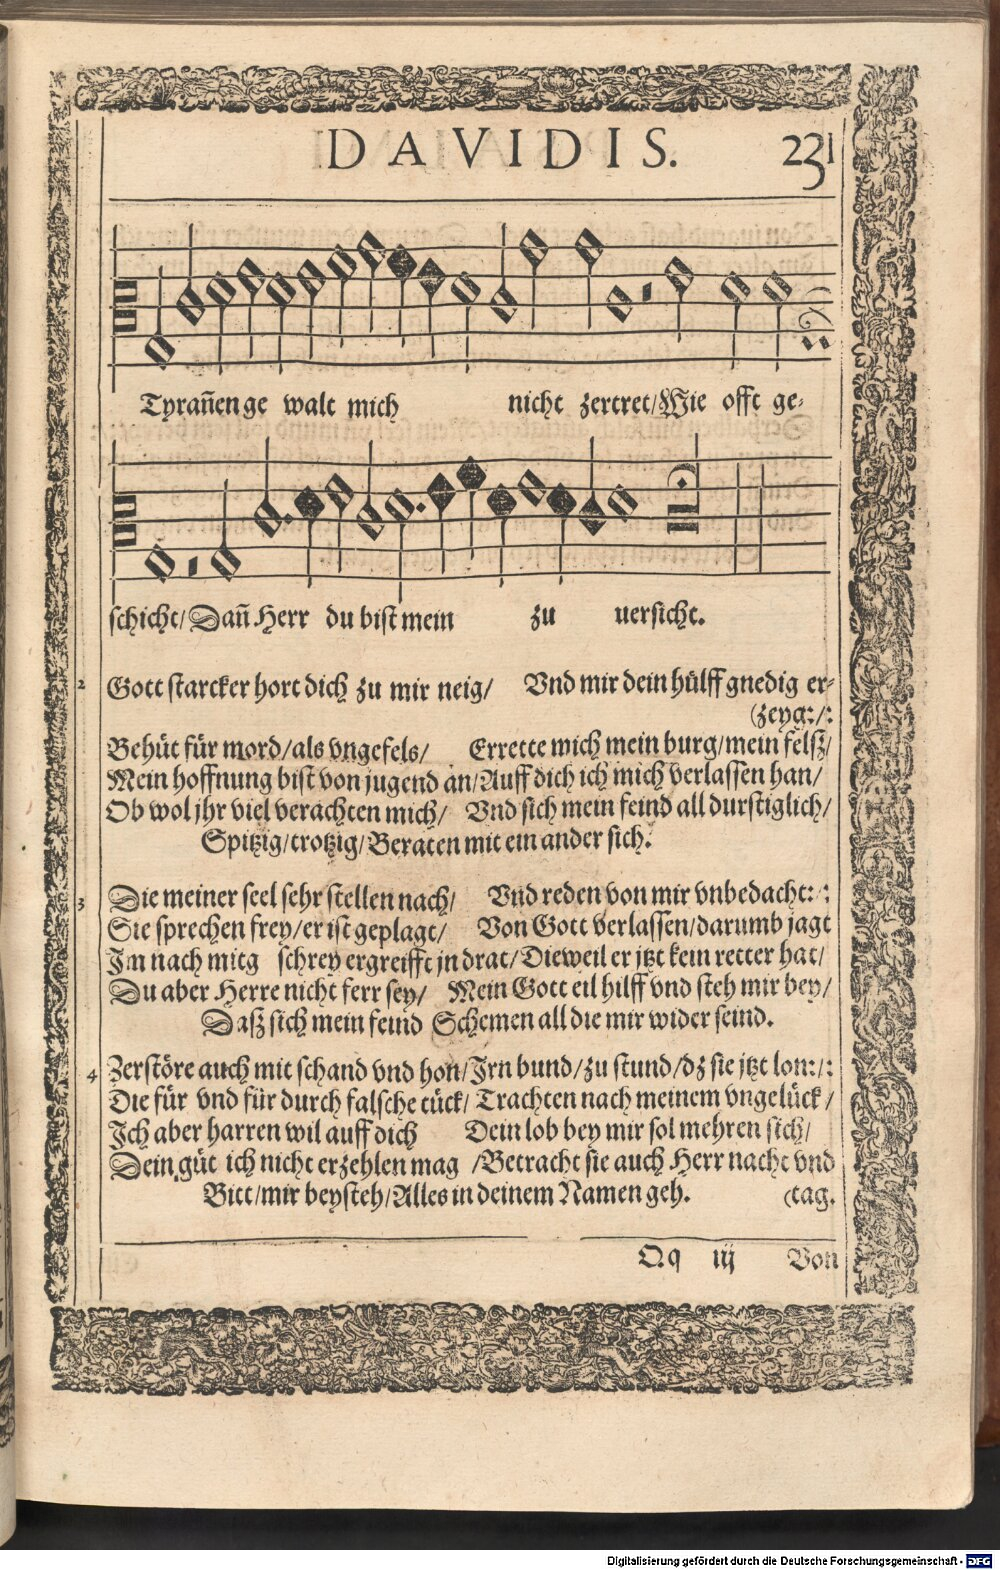 DAVIDIS. 231
Tyrañen ge walt mich nicht zertret/Wie offt ge-
schicht/Dañ Herr du bist mein zu uersicht.
2 Gott starcker hort dich zu mir neig/ Vnd mir dein hülff gnedig er-
(zeyg:/:
Behüt für mord/als vngefels/ Errette mich mein burg/mein felsz/
Mein hoffnung bist von jugend an/Auff dich ich mich verlassen han/
Ob wol jhr viel verachten mich/ Vnd sich mein feind all durstiglich/
Spitzig/trotzig/Beraten mit ein ander sich.
3 Die meiner seel sehr stellen nach/ Vnd reden von mir vnbedacht:/:
Sie sprechen frey/er ist geplagt/ Von Gott verlassen/darumb jagt
Im nach mitg schrey ergreifft jn drat/Dieweil er jtzt kein retter hat/
Du aber Herre nicht ferr sey/ Mein Gott eil hilff vnd steh mir bey/
Dasz sich mein feind Schemen all die mir wider seind.
4 Zerstöre auch mit schand vnd hon/Irn bund/zu stund/dz sie jtzt lon:/:
Die für vnd für durch falsche tück/Trachten nach meinem vngelück/
Ich aber harren wil auff dich Dein lob bey mir sol mehren sich/
Dein güt ich nicht erzehlen mag /Betracht sie auch Herr nacht vnd
Bitt/mir beysteh/Alles in deinem Namen geh. (tag.
Qq iij Von
Digitalisierung gefördert durch die Deutsche Forschungsgemeinschaft - DFG